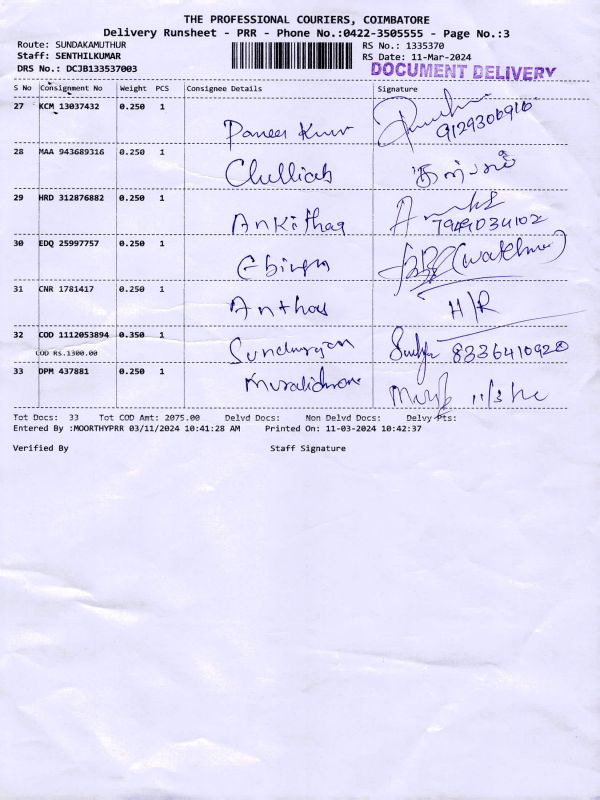 THE PROFESSIONAL COURIERS, COIMBATORE
Delivery Runsheet - PRR - Phone No.:0422-3505555 - Page No.:3
Route: SUNDAKAMUTHUR
Staff: SENTHILKUMAR
DRS No.: DCJB133537003
RS No.: 1335370
RS Date: 11-Mar-2024
DOCUMENT DELIVERY
S No Consignment No Weight PCS Consignee Details Signature
27 KCM 13037432 0.250 1
28 MAA 943689316 0.250 1
29 HRD 312876882 0.250 1
Ankithaa
30 EDQ 25997757 0.250 1
(Watchman)
31 CNR 1781417 0.250 1
H/R
32 COD 1112053894 0.350 1
COD Rs.1300.00
33 DPM 437881 0.250 1
Tot Docs: 33 Tot COD Amt: 2075.00 Delvd Docs: Non Delvd Docs: Delvy Pts:
Entered By :MOORTHYPRR 03/11/2024 10:41:28 AM Printed On: 11-03-2024 10:42:37
Verified By Staff Signature